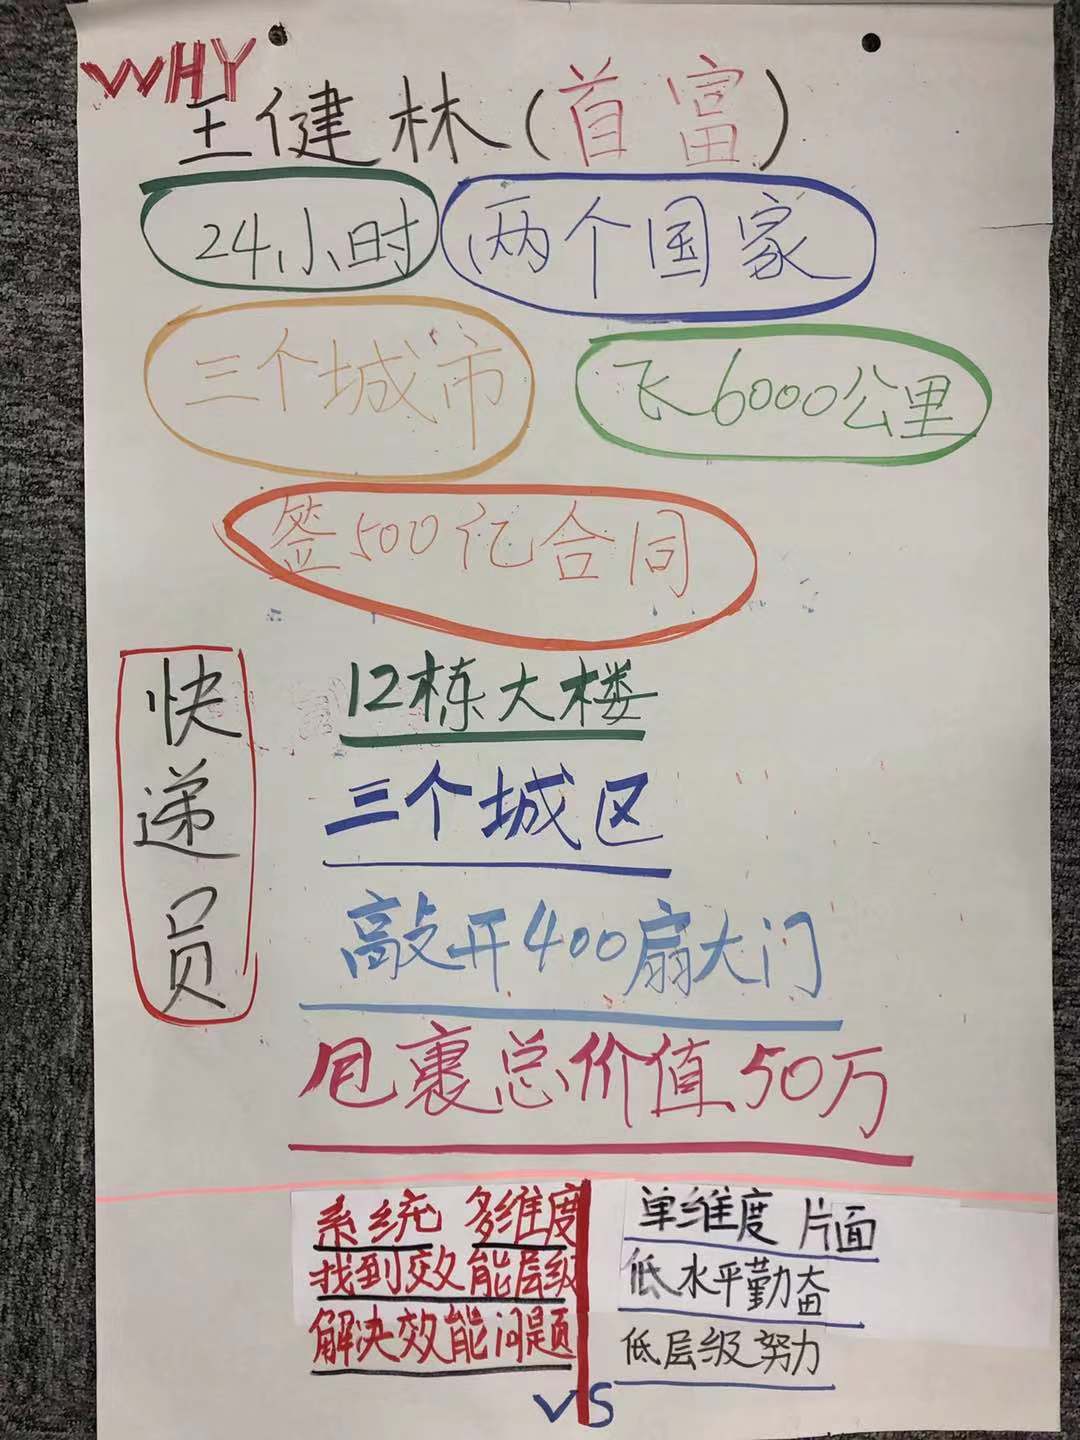 WHY
王健林(首富)
24小时 两个国家
三个城市 飞6000公里
签500亿合同
快递员
12栋大楼
三个城区
敲开400扇大门
包裹总价值50万
系统 多维度
找到效能层级
解决效能问题
单维度 片面
低水平勤奋
低层级努力
VS